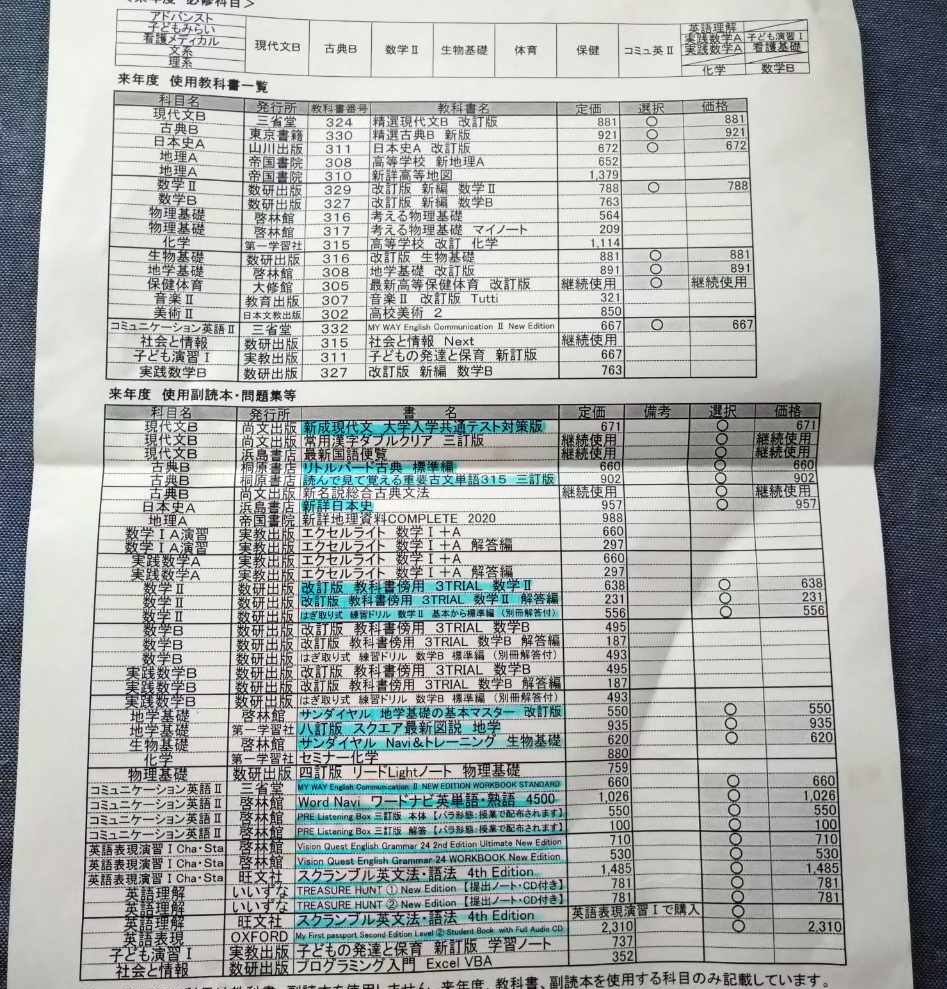 <来年度 必修科目>
アドバンスト
子どもみらい
看護メディカル
文系
理系
現代文B 古典B 数学Ⅱ 生物基礎 体育 保健 コミュ英Ⅱ
英語理解
実践数学A 子ども演習Ⅰ
実践数学A 看護基礎
化学 数学B
来年度 使用教科書一覧
科目名 発行所 教科書番号 教科書名 定価 選択 価格
現代文B 三省堂 324 精選現代文B 改訂版 881 ○ 881
古典B 東京書籍 330 精選古典B 新版 921 ○ 921
日本史A 山川出版 311 日本史A 改訂版 672 ○ 672
地理A 帝国書院 308 高等学校 新地理A 652
地理A 帝国書院 310 新詳高等地図 1,379
数学Ⅱ 数研出版 329 改訂版 新編 数学Ⅱ 788 ○ 788
数学B 数研出版 327 改訂版 新編 数学B 763
物理基礎 啓林館 316 考える物理基礎 564
物理基礎 啓林館 317 考える物理基礎 マイノート 209
化学 第一学習社 315 高等学校 改訂 化学 1,114
生物基礎 数研出版 316 改訂版 生物基礎 881 ○ 881
地学基礎 啓林館 308 地学基礎 改訂版 891 ○ 891
保健体育 大修館 305 最新高等保健体育 改訂版 継続使用 ○ 継続使用
音楽Ⅱ 教育出版 307 音楽Ⅱ 改訂版 Tutti 321
美術Ⅱ 日本文教出版 302 高校美術 2 850
コミュニケーション英語Ⅱ 三省堂 332 MY WAY English Communication Ⅱ New Edition 667 ○ 667
社会と情報 数研出版 315 社会と情報 Next 継続使用
子ども演習Ⅰ 実教出版 311 子どもの発達と保育 新訂版 667
実践数学B 数研出版 327 改訂版 新編 数学B 763
来年度 使用副読本・問題集等
科目名 発行所 書 名 定価 備考 選択 価格
現代文B 尚文出版 新成現代文 大学入学共通テスト対策版 671 ○ 671
現代文B 尚文出版 常用漢字ダブルクリア 三訂版 継続使用 ○ 継続使用
現代文B 浜島書店 最新国語便覧 継続使用 ○ 継続使用
古典B 桐原書店 リトルバード古典 標準編 660 ○ 660
古典B 桐原書店 読んで見て覚える重要古文単語315 三訂版 902 ○ 902
古典B 尚文出版 新名説総合古典文法 継続使用 ○ 継続使用
日本史A 浜島書店 新詳日本史 957 ○ 957
地理A 帝国書院 新詳地理資料COMPLETE 2020 988
数学ⅠA演習 実教出版 エクセルライト 数学Ⅰ+A 660
数学ⅠA演習 実教出版 エクセルライト 数学Ⅰ+A 解答編 297
実践数学A 実教出版 エクセルライト 数学Ⅰ+A 660
実践数学A 実教出版 エクセルライト 数学Ⅰ+A 解答編 297
数学Ⅱ 数研出版 改訂版 教科書傍用 3TRIAL 数学Ⅱ 638 ○ 638
数学Ⅱ 数研出版 改訂版 教科書傍用 3TRIAL 数学Ⅱ 解答編 231 ○ 231
数学Ⅱ 数研出版 はぎ取り式 練習ドリル 数学Ⅱ 基本から標準編(別冊解答付) 556 ○ 556
数学B 数研出版 改訂版 教科書傍用 3TRIAL 数学B 495
数学B 数研出版 改訂版 教科書傍用 3TRIAL 数学B 解答編 187
数学B 数研出版 はぎ取り式 練習ドリル 数学B 標準編(別冊解答付) 493
実践数学B 数研出版 改訂版 教科書傍用 3TRIAL 数学B 495
実践数学B 数研出版 改訂版 教科書傍用 3TRIAL 数学B 解答編 187
実践数学B 数研出版 はぎ取り式 練習ドリル 数学B 標準編(別冊解答付) 493
地学基礎 啓林館 サンダイヤル 地学基礎の基本マスター 改訂版 550 ○ 550
地学基礎 第一学習社 八訂版 スクエア最新図説 地学 935 ○ 935
生物基礎 啓林館 サンダイヤル Navi&トレーニング 生物基礎 620 ○ 620
化学 第一学習社 セミナー化学 880
物理基礎 数研出版 四訂版 リードLightノート 物理基礎 759
コミュニケーション英語Ⅱ 三省堂 MY WAY English Communication Ⅱ NEW EDITION WORKBOOK STANDARD 660 ○ 660
コミュニケーション英語Ⅱ 啓林館 Word Navi ワードナビ英単語・熟語 4500 1,026 ○ 1,026
コミュニケーション英語Ⅱ 啓林館 PRE Listening Box 三訂版 本体【バラ形態:授業で配布されます】 550 ○ 550
コミュニケーション英語Ⅱ 啓林館 PRE Listening Box 三訂版 解答【バラ形態:授業で配布されます】 100 ○ 100
英語表現演習Ⅰ Cha・Sta 啓林館 Vision Quest English Grammar 24 2nd Edition Ultimate New Edition 710 ○ 710
英語表現演習Ⅰ Cha・Sta 啓林館 Vision Quest English Grammar 24 WORKBOOK New Edition 530 ○ 530
英語表現演習Ⅰ Cha・Sta 旺文社 スクランブル英文法・語法 4th Edition 1,485 ○ 1,485
英語理解 いいずな TREASURE HUNT ① New Edition【提出ノート・CD付き】 781 ○ 781
英語理解 いいずな TREASURE HUNT ② New Edition【提出ノート・CD付き】 781 ○ 781
英語理解 旺文社 スクランブル英文法・語法 4th Edition 英語表現演習Ⅰで購入 ○
英語表現 OXFORD My First passport Second Edition Level ② Student Book with Full Audio CD 2,310 ○ 2,310
子ども演習Ⅰ 実教出版 子どもの発達と保育 新訂版 学習ノート 737
社会と情報 数研出版 プログラミング入門 Excel VBA 352
教科書、副読本を使用しません。来年度、教科書、副読本を使用する科目のみ記載しています。